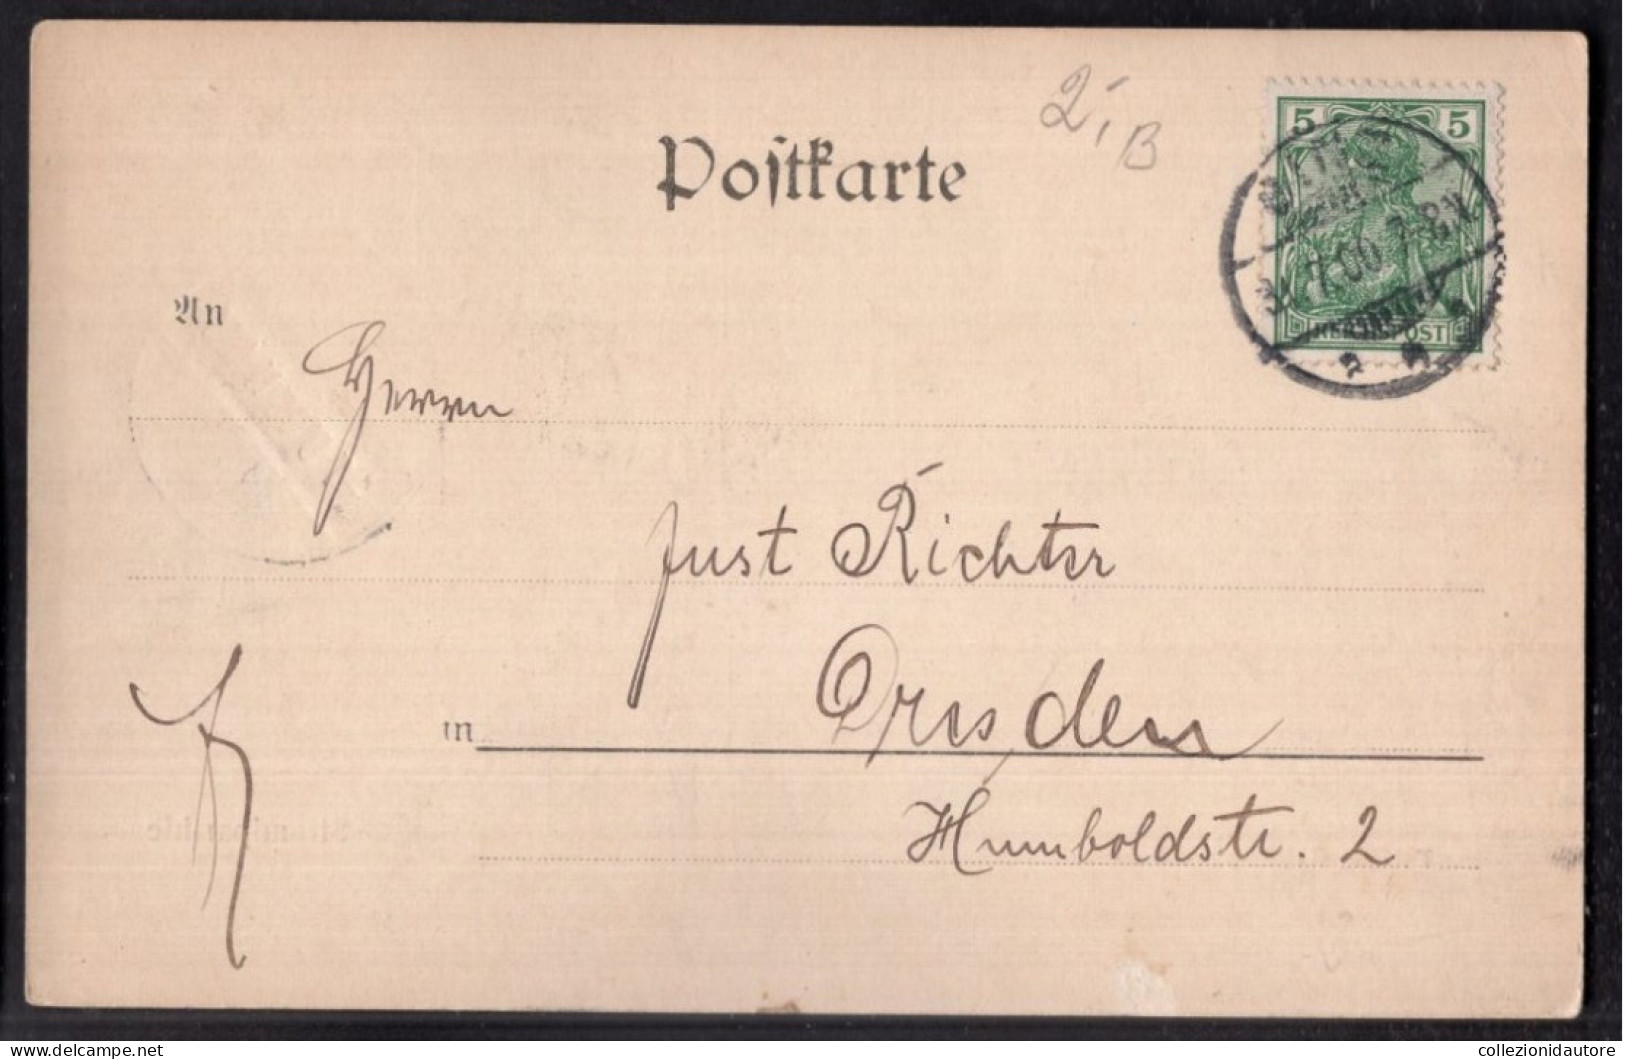 2,- B
Postkarte
5 5
7.00 7-8N.
REICHSPOST
An
Herrn
Just Richter
in Dresden
Humboldstr. 2
delcampe.net
collezionidautore